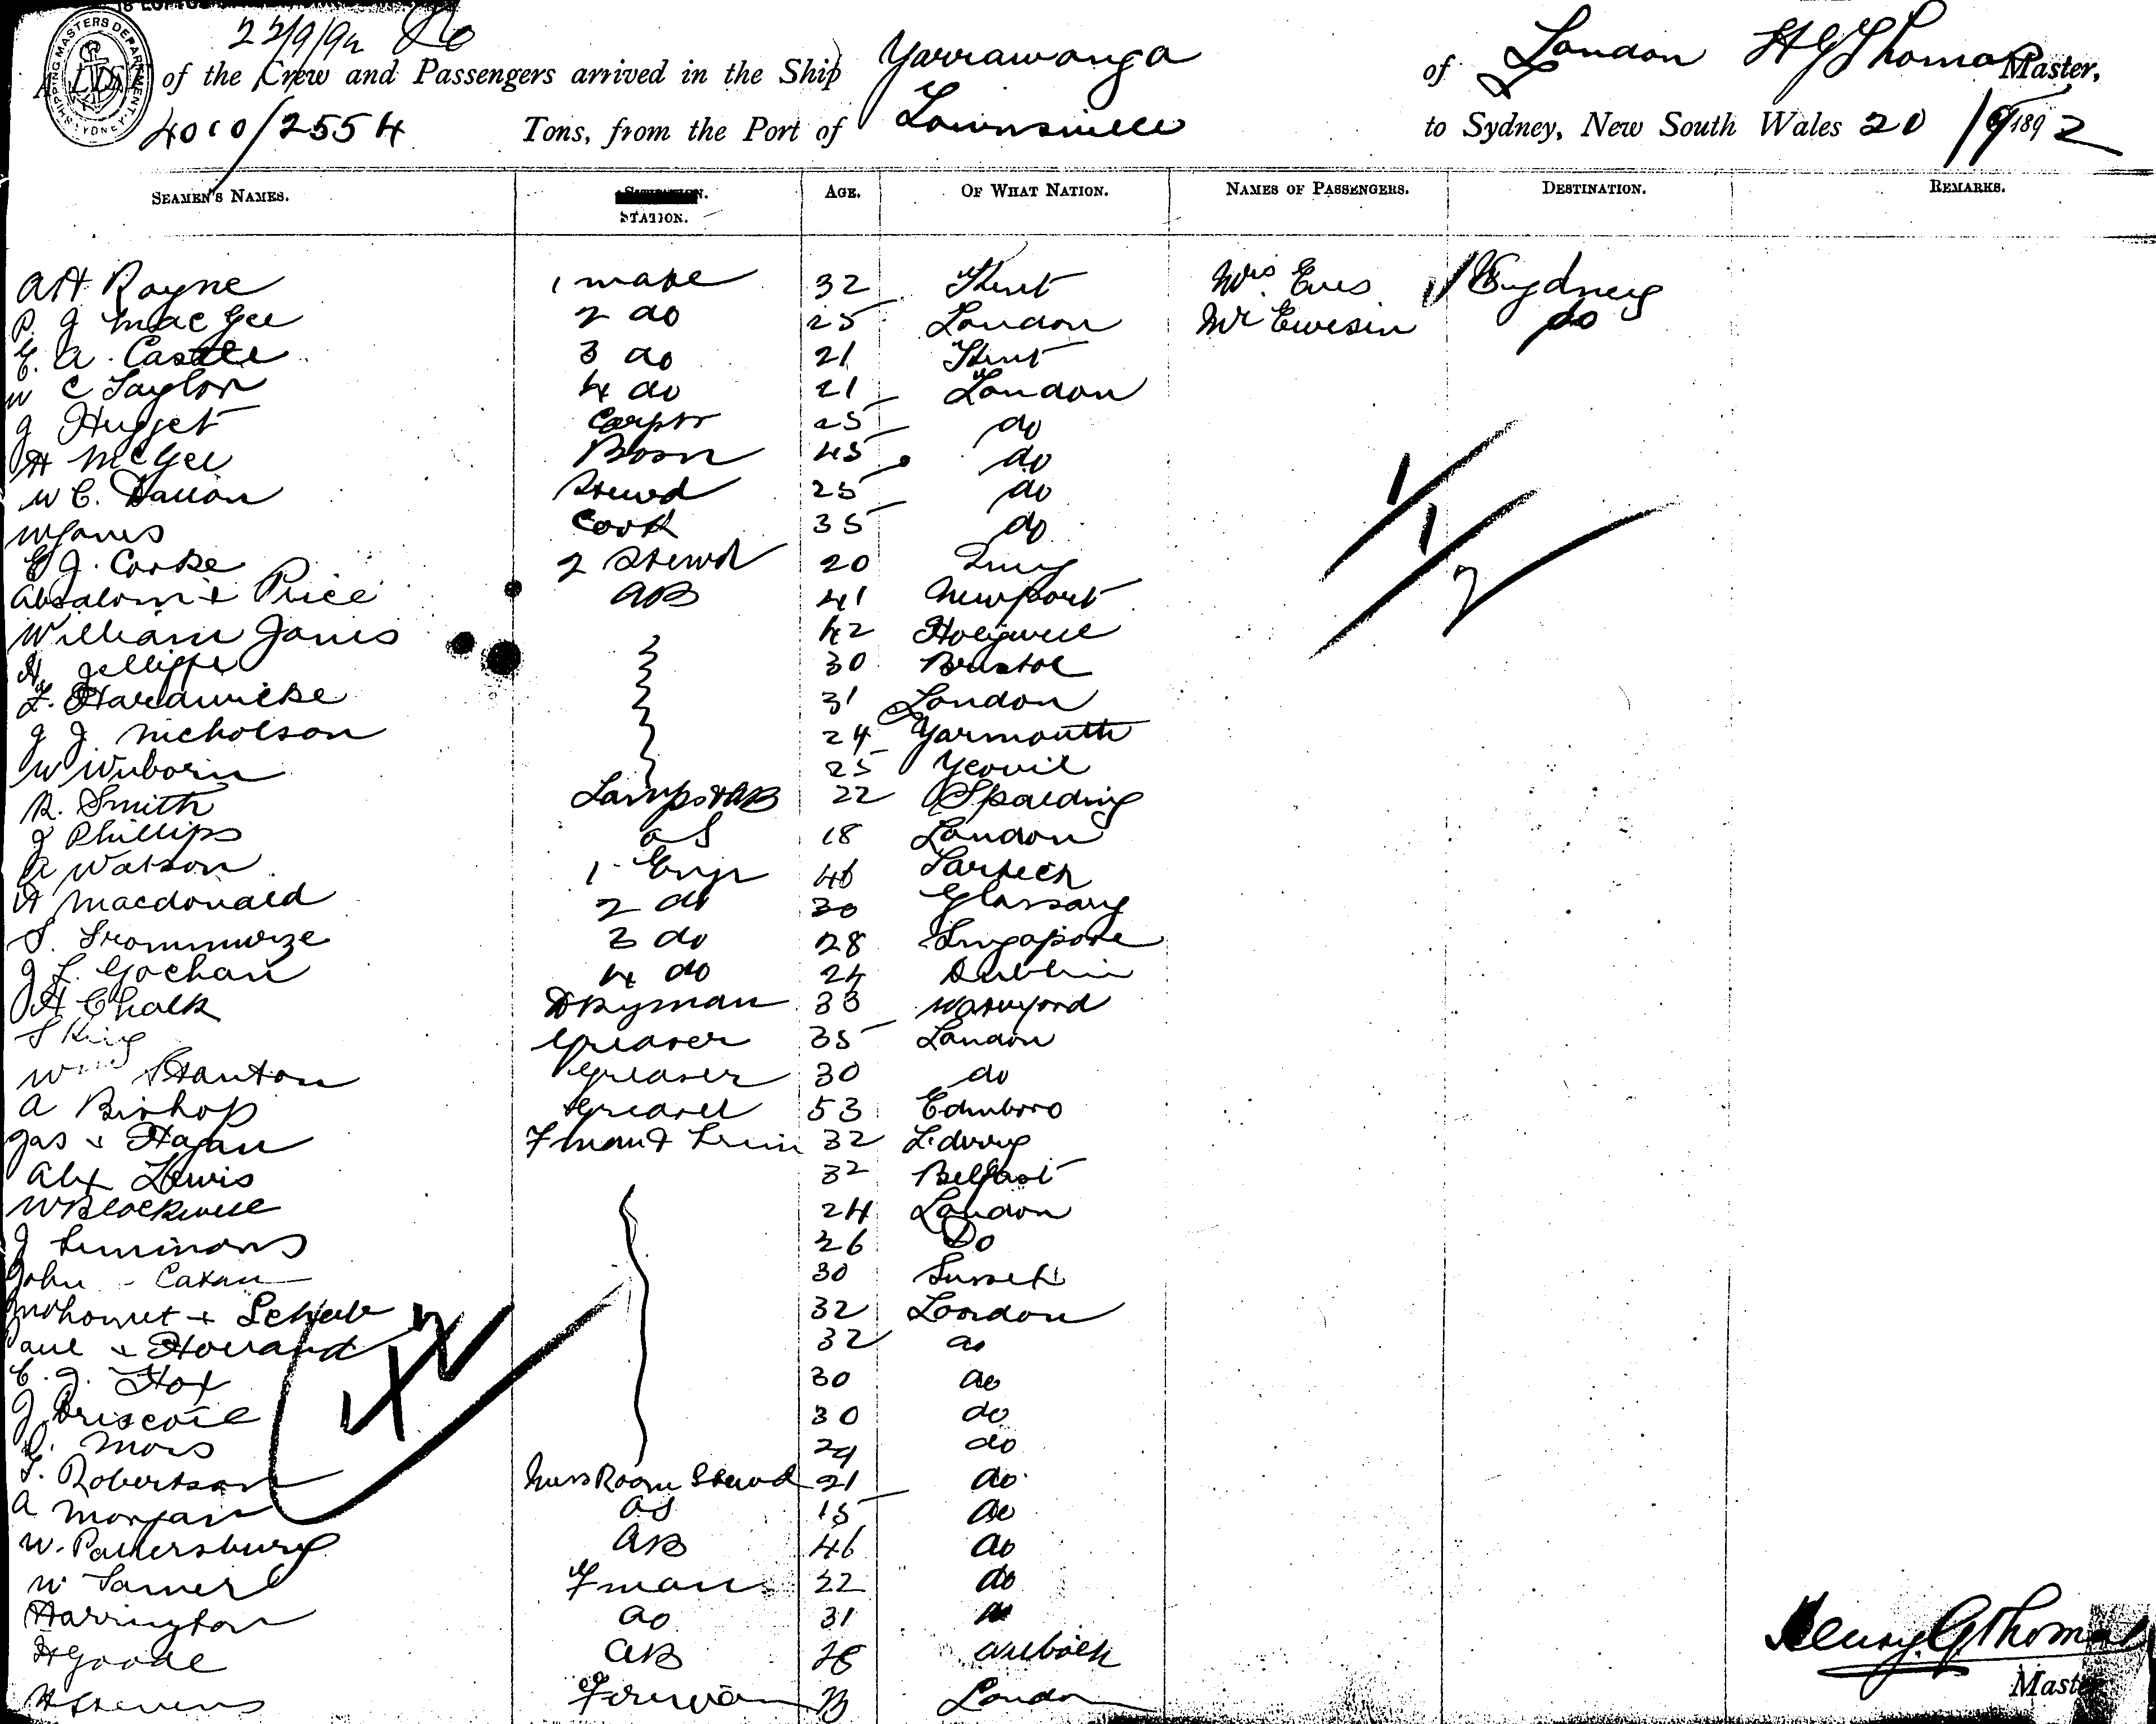 22/9/92
SHIPPING MASTERS DEPARTMENT SYDNEY
A LIST of the Crew and Passengers arrived in the Ship Yarrawonga of London H G Thomas Master,
4010/2554 Tons, from the Port of Townsville to Sydney, New South Wales 20/9/1892
SEAMEN'S NAMES. STATION. AGE. OF WHAT NATION. NAMES OF PASSENGERS. DESTINATION. REMARKS.
A H Rayne 1 mate 32 Kent Mrs. Eves Sydney
P. J MacGee 2 do 25 London Mr Ewesin do
E. A. Castle 3 do 21 Kent
W C Taylor 4 do 21 London
J Hugget Carptr 25 do
H McGee Bosn 45 do
W C. Dalton Stewd 25 do
W Jones Cook 35 do
E J. Cooke 2 Stewd 20
Absalom + Price AB 41 Newport
William Jones 42 Holywell
H Jelliffe 30 Bristol
F. Hardwicke 31 London
J J. Nicholson 24 Yarmouth
W Wiborn 25 Yeovil
R. Smith Lamps & AB 22 Spalding
J Phillips OS 18 London
A Watson 1 Engr 46
A Macdonald 2 do 30 Glassary
S. 3 do 28 Singapore
J F. Gochan 4 do 24 Dublin
H Chalk Dkyman 33 Waterford
S King Greaser 35 London
Wm Stanton Greaser 30 do
A Bishop Greaser 53 Edinboro
Jas x Hagan Fman & Trim 32 L.derry
Alex Lewis 32 Belfast
W Blackwell 24 London
J Timmons 26 Do
John - 30 Sussex
Mohomet + 32 London
Paul x Holland 32 do
C. J. Hox 30 do
J Driscoll 30 do
Mors 29 do
T. Robertson Mess Room Stewd 21 do
A Morgan OS 15 do
W. Pattersburg AB 46 do
W Fman 22 do
Harrington do 31 do
H Goode AB
H Stevens Fireman London
1
1
2
42
Henry G Thomas
Master